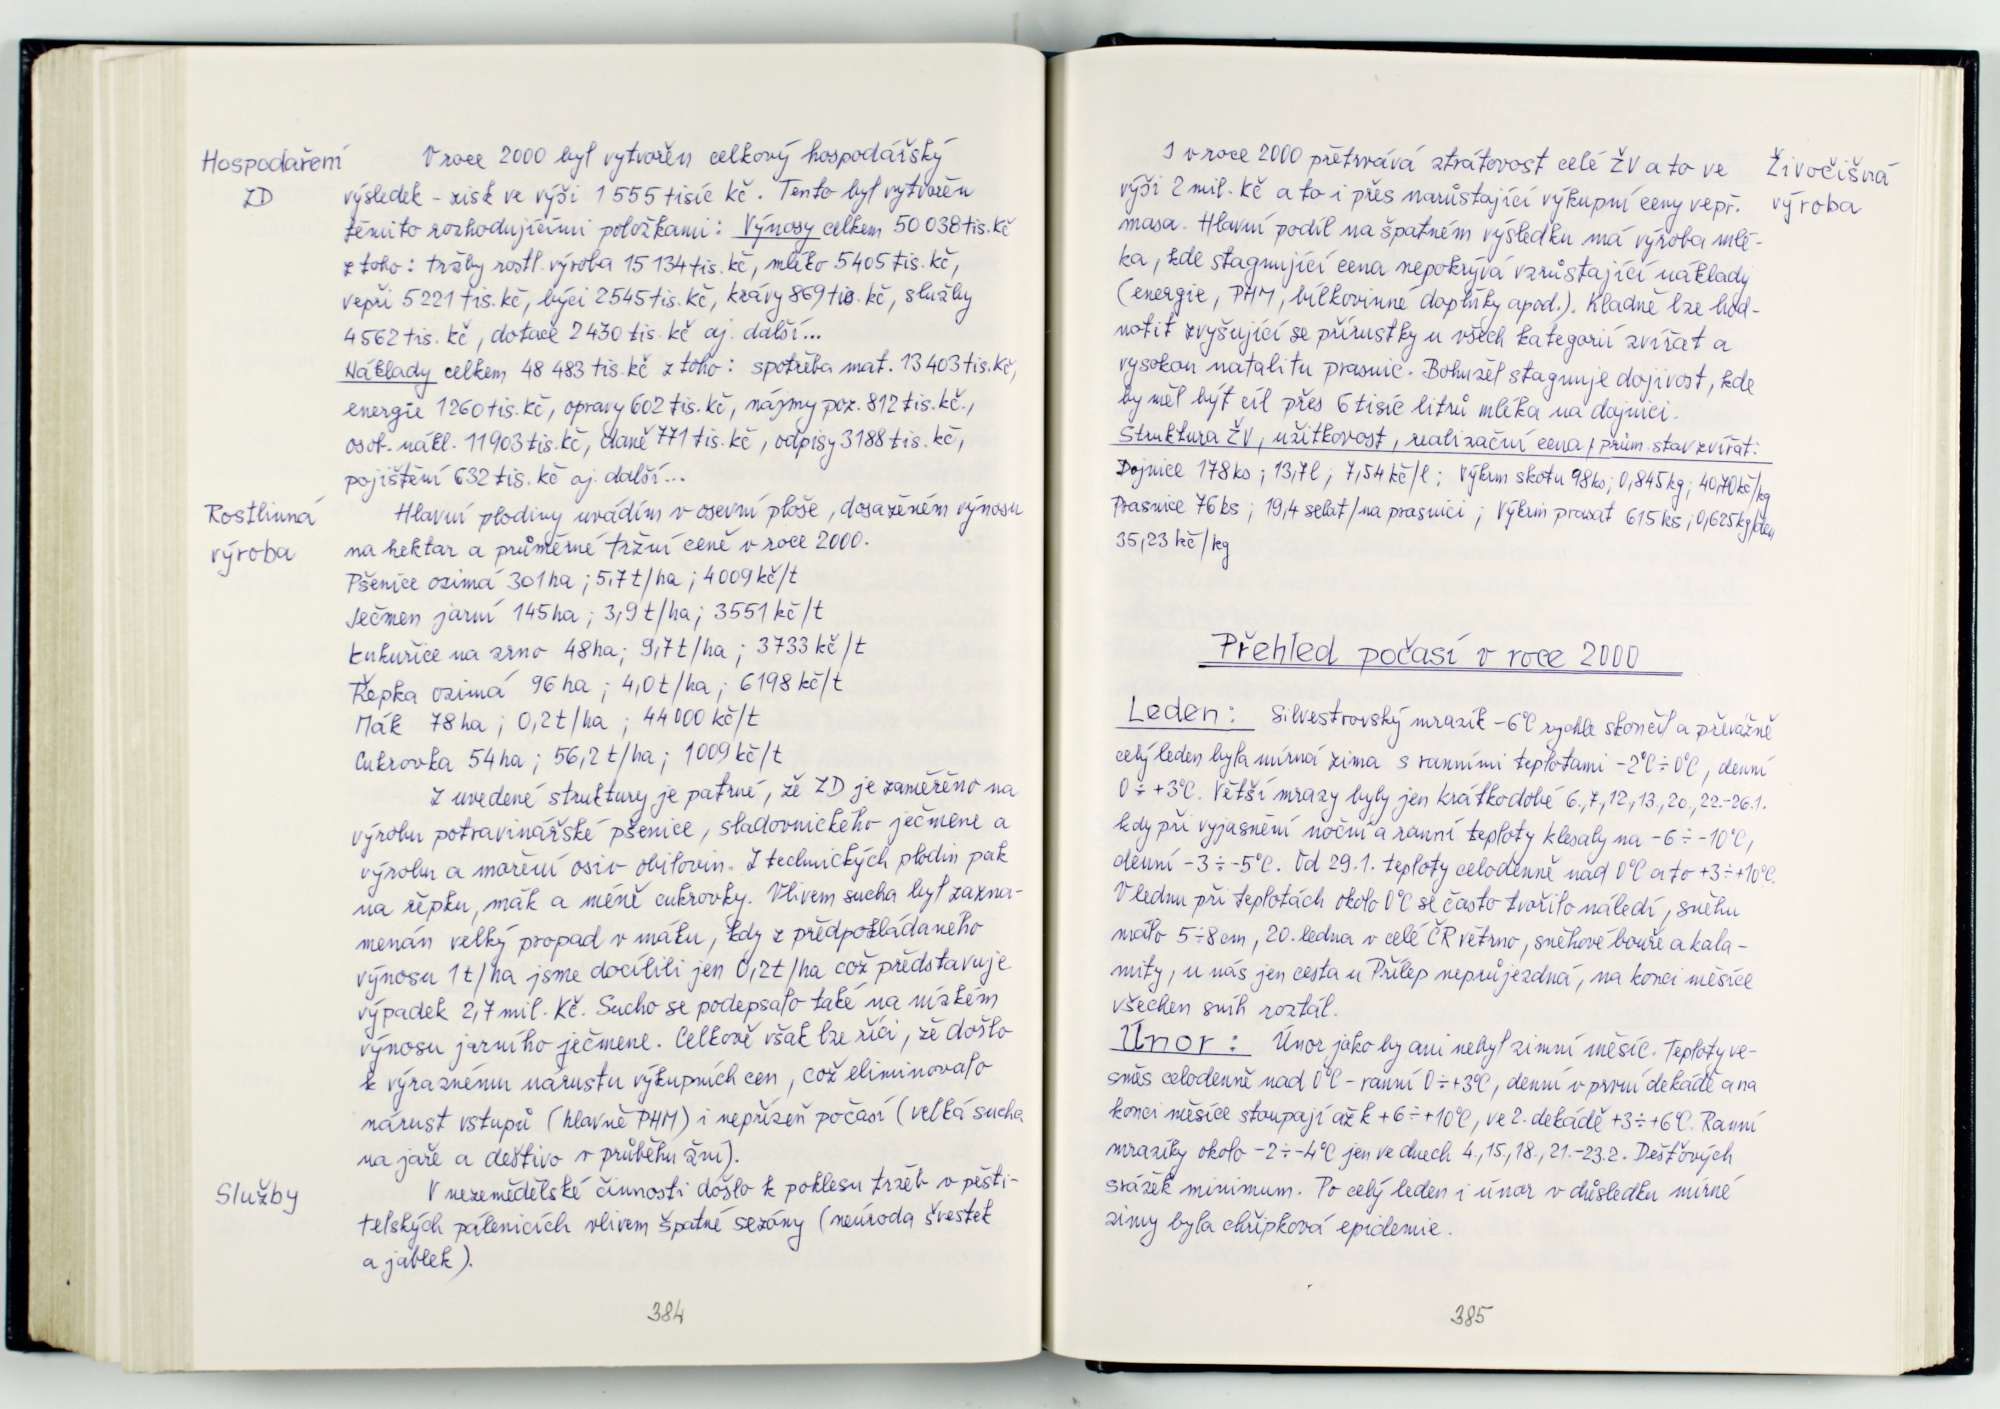 Hospodaření
ZD
V roce 2000 byl vytvořen celkový hospodářský
výsledek - zisk ve výši 1 555 tisíc Kč. Tento byl vytvořen
těmito rozhodujícími položkami: Výnosy celkem 50 038 tis. Kč
z toho: tržby rostl. výroba 15 134 tis. Kč, mléko 5405 tis. Kč,
vepři 5 221 tis. Kč, býci 2545 tis. Kč, krávy 869 tis. Kč, služby
4562 tis. Kč, dotace 2430 tis. Kč aj. další...
Náklady celkem 48 483 tis. Kč z toho: spotřeba mat. 13 403 tis. Kč,
energie 1260 tis. Kč, opravy 602 tis. Kč, nájmy poz. 812 tis. Kč.,
osob. nákl. 11903 tis. Kč, daně 771 tis. Kč, odpisy 3188 tis. Kč,
pojištění 632 tis. Kč aj. další...
Rostlinná
výroba
Hlavní plodiny uvádím v osevní ploše, dosaženém výnosu
na hektar a průměrné tržní ceně v roce 2000.
Pšenice ozimá 301 ha ; 5,7 t/ha ; 4009 Kč/t
Ječmen jarní 145 ha ; 3,9 t/ha ; 3551 Kč/t
Kukuřice na zrno 48 ha ; 9,7 t/ha ; 3733 Kč/t
Řepka ozimá 96 ha ; 4,0 t/ha ; 6198 Kč/t
Mák 78 ha ; 0,2 t/ha ; 44000 Kč/t
Cukrovka 54 ha ; 56,2 t/ha ; 1009 Kč/t
Z uvedené struktury je patrné, že ZD je zaměřeno na
výrobu potravinářské pšenice, sladovnického ječmene a
výrobu a moření osiv obilovin. Z technických plodin pak
na řepku, mák a méně cukrovky. Vlivem sucha byl zazna-
menán velký propad v máku, kdy z předpokládaného
výnosu 1 t/ha jsme docílili jen 0,2 t/ha což představuje
výpadek 2,7 mil. Kč. Sucho se podepsalo také na nízkém
výnosu jarního ječmene. Celkově však lze říci, že došlo
k výraznému nárustu výkupních cen, což eliminovalo
nárust vstupů (hlavně PHM) i nepřízeň počasí (velká sucha
na jaře a deštivo v průběhu žní).
Služby
V nezemědělské činnosti došlo k poklesu tržeb v pěsti-
telských pálenicích vlivem špatné sezóny (neúroda švestek
a jablek).
384
Živočišná
výroba
I v roce 2000 přetrvává ztrátovost celé ŽV a to ve
výši 2 mil. Kč a to i přes narůstající výkupní ceny vepř.
masa. Hlavní podíl na špatném výsledku má výroba mlé-
ka, kde stagnující cena nepokrývá vzrůstající náklady
(energie, PHM, bílkovinné doplňky apod.). Kladně lze hod-
notit zvyšující se přírustky u všech kategorií zvířat a
vysokou natalitu prasnic. Bohužel stagnuje dojivost, kde
by měl být cíl přes 6 tisíc litrů mléka na dojnici.
Struktura ŽV, užitkovost, realizační cena, prům. stav zvířat:
Dojnice 178 ks ; 13,7 l ; 7,54 Kč/l ; Výkrm skotu 98 ks ; 0,845 kg ; 40,70 Kč/kg
Prasnice 76 ks ; 19,4 selat/na prasnici ; Výkrm prasat 615 ks ; 0,625 kg/den
35,23 Kč/kg
Přehled počasí v roce 2000
Leden: Silvestrovský mrazík -6°C rychle skončil a převážně
celý leden byla mírná zima s ranními teplotami -2°C ÷ 0°C, denní
0 ÷ +3°C. Větší mrazy byly jen krátkodobé 6., 7., 12., 13., 20., 22.-26.1.
kdy při vyjasnění noční a ranní teploty klesaly na -6 ÷ -10°C,
denní -3 ÷ -5°C. Od 29.1. teploty celodenně nad 0°C a to +3 ÷ +10°C.
V lednu při teplotách okolo 0°C se často tvořilo náledí, sněhu
málo 5 ÷ 8 cm, 20. ledna v celé ČR větrno, sněhové bouře a kala-
mity, u nás jen cesta u Přílep neprůjezdná, na konci měsíce
všechen sníh roztál.
Únor: Únor jako by ani nebyl zimní měsíc. Teploty ve-
směs celodenně nad 0°C - ranní 0 ÷ +3°C, denní v první dekádě a na
konci měsíce stoupají až k +6 ÷ +10°C, ve 2. dekádě +3 ÷ +6°C. Ranní
mrazíky okolo -2 ÷ -4°C jen ve dnech 4., 15., 18., 21.-23.2. Dešťových
srážek minimum. Po celý leden i únor v důsledku mírné
zimy byla chřipková epidemie.
385